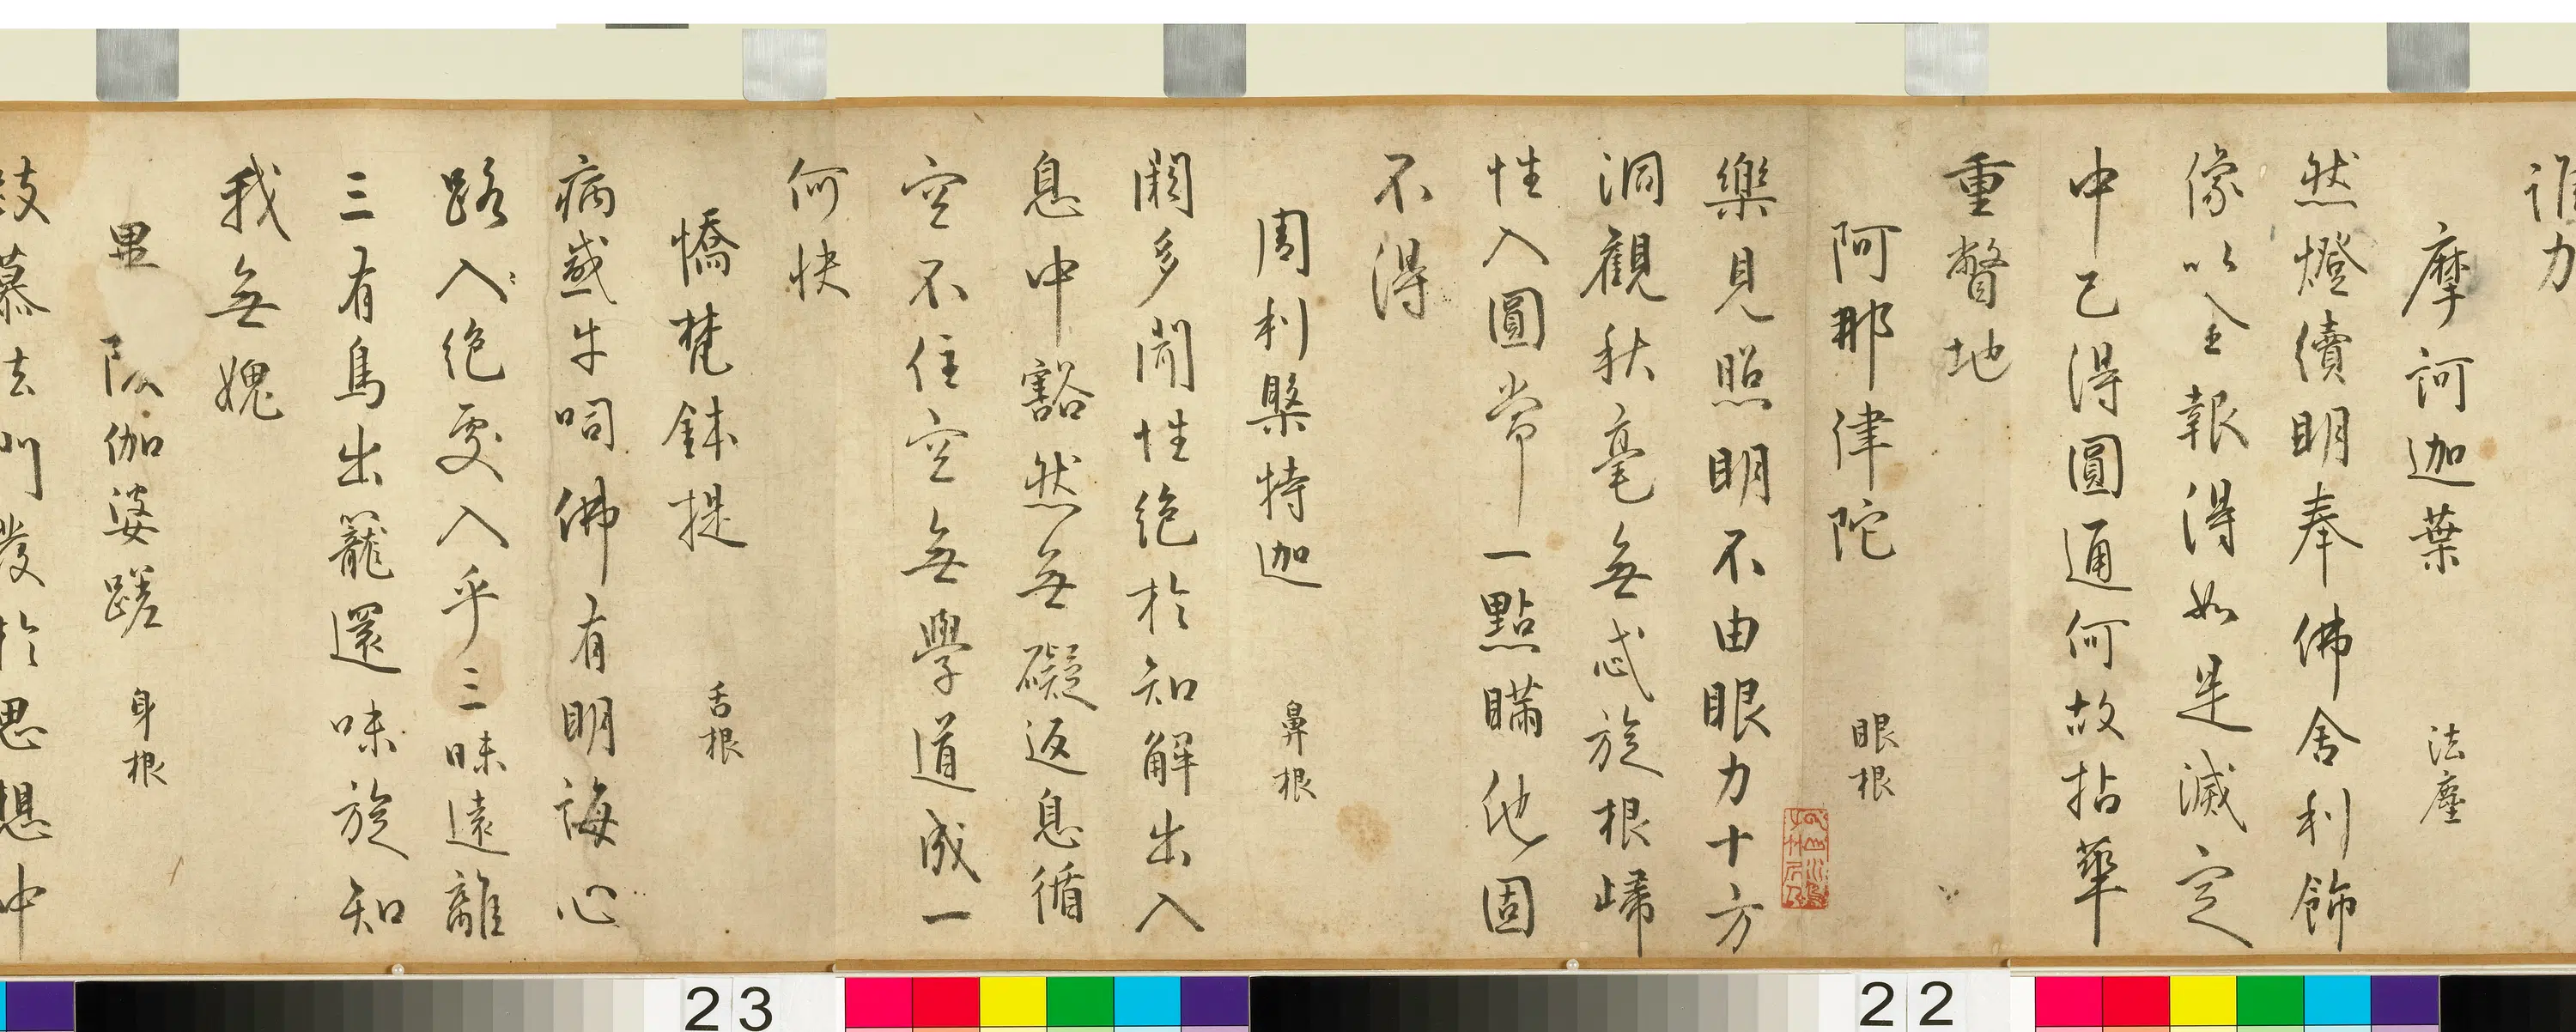 誰力
摩訶迦葉 法塵
然燈續明奉佛舍利飾
像以金報得如是滅定
中已得圓通何故拈華
重瞥地
阿那律陀 眼根
樂見照明不由眼力十方
洞觀秋毫無忒旋根歸
性入圓常一點瞞他固
不得
周利槃特迦 鼻根
闕多聞性絕於知解出入
息中豁然無礙返息循
空不住空無學道成一
何快
憍梵鉢提 舌根
病感牛呞佛有明誨心
路入〻絕處入乎三昧遠離
三有鳥出籠還味旋知
我無媿
畢陵伽婆蹉 身根
慕法門發於思想中
23
22